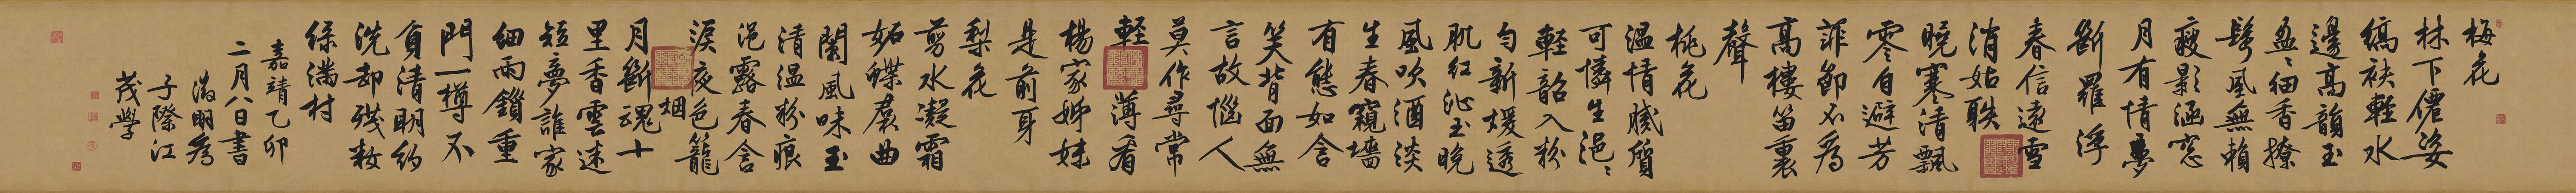 梅花
林下僊姿
縞袂輕水
邊高韻玉
盈盈細香撩
鬢風無賴
疎影涵窓
月有情夢
斷羅浮
春信遠雪
消姑射
曉寒清飄
零自避芳
菲節不為
高樓笛裏
聲
桃花
溫情膩質
可憐生浥浥
輕韶入粉
勻新煖透
肌紅沁玉晚
風吹酒淡
生春窺墻
有態如含
笑背面無
言故惱人
莫作尋常
輕薄看
楊家姊妹
是前身
梨花
剪水凝霜
妬蝶羣曲
闌風味玉
清溫粉痕
浥露春含
淚夜色籠
烟
月斷魂十
里香雲迷
短夢誰家
細雨鎖重
門一樽不
負清明約
洗却殘籹
綠滿村
嘉靖乙卯
二月八日書
徵明為
子際江
茂學